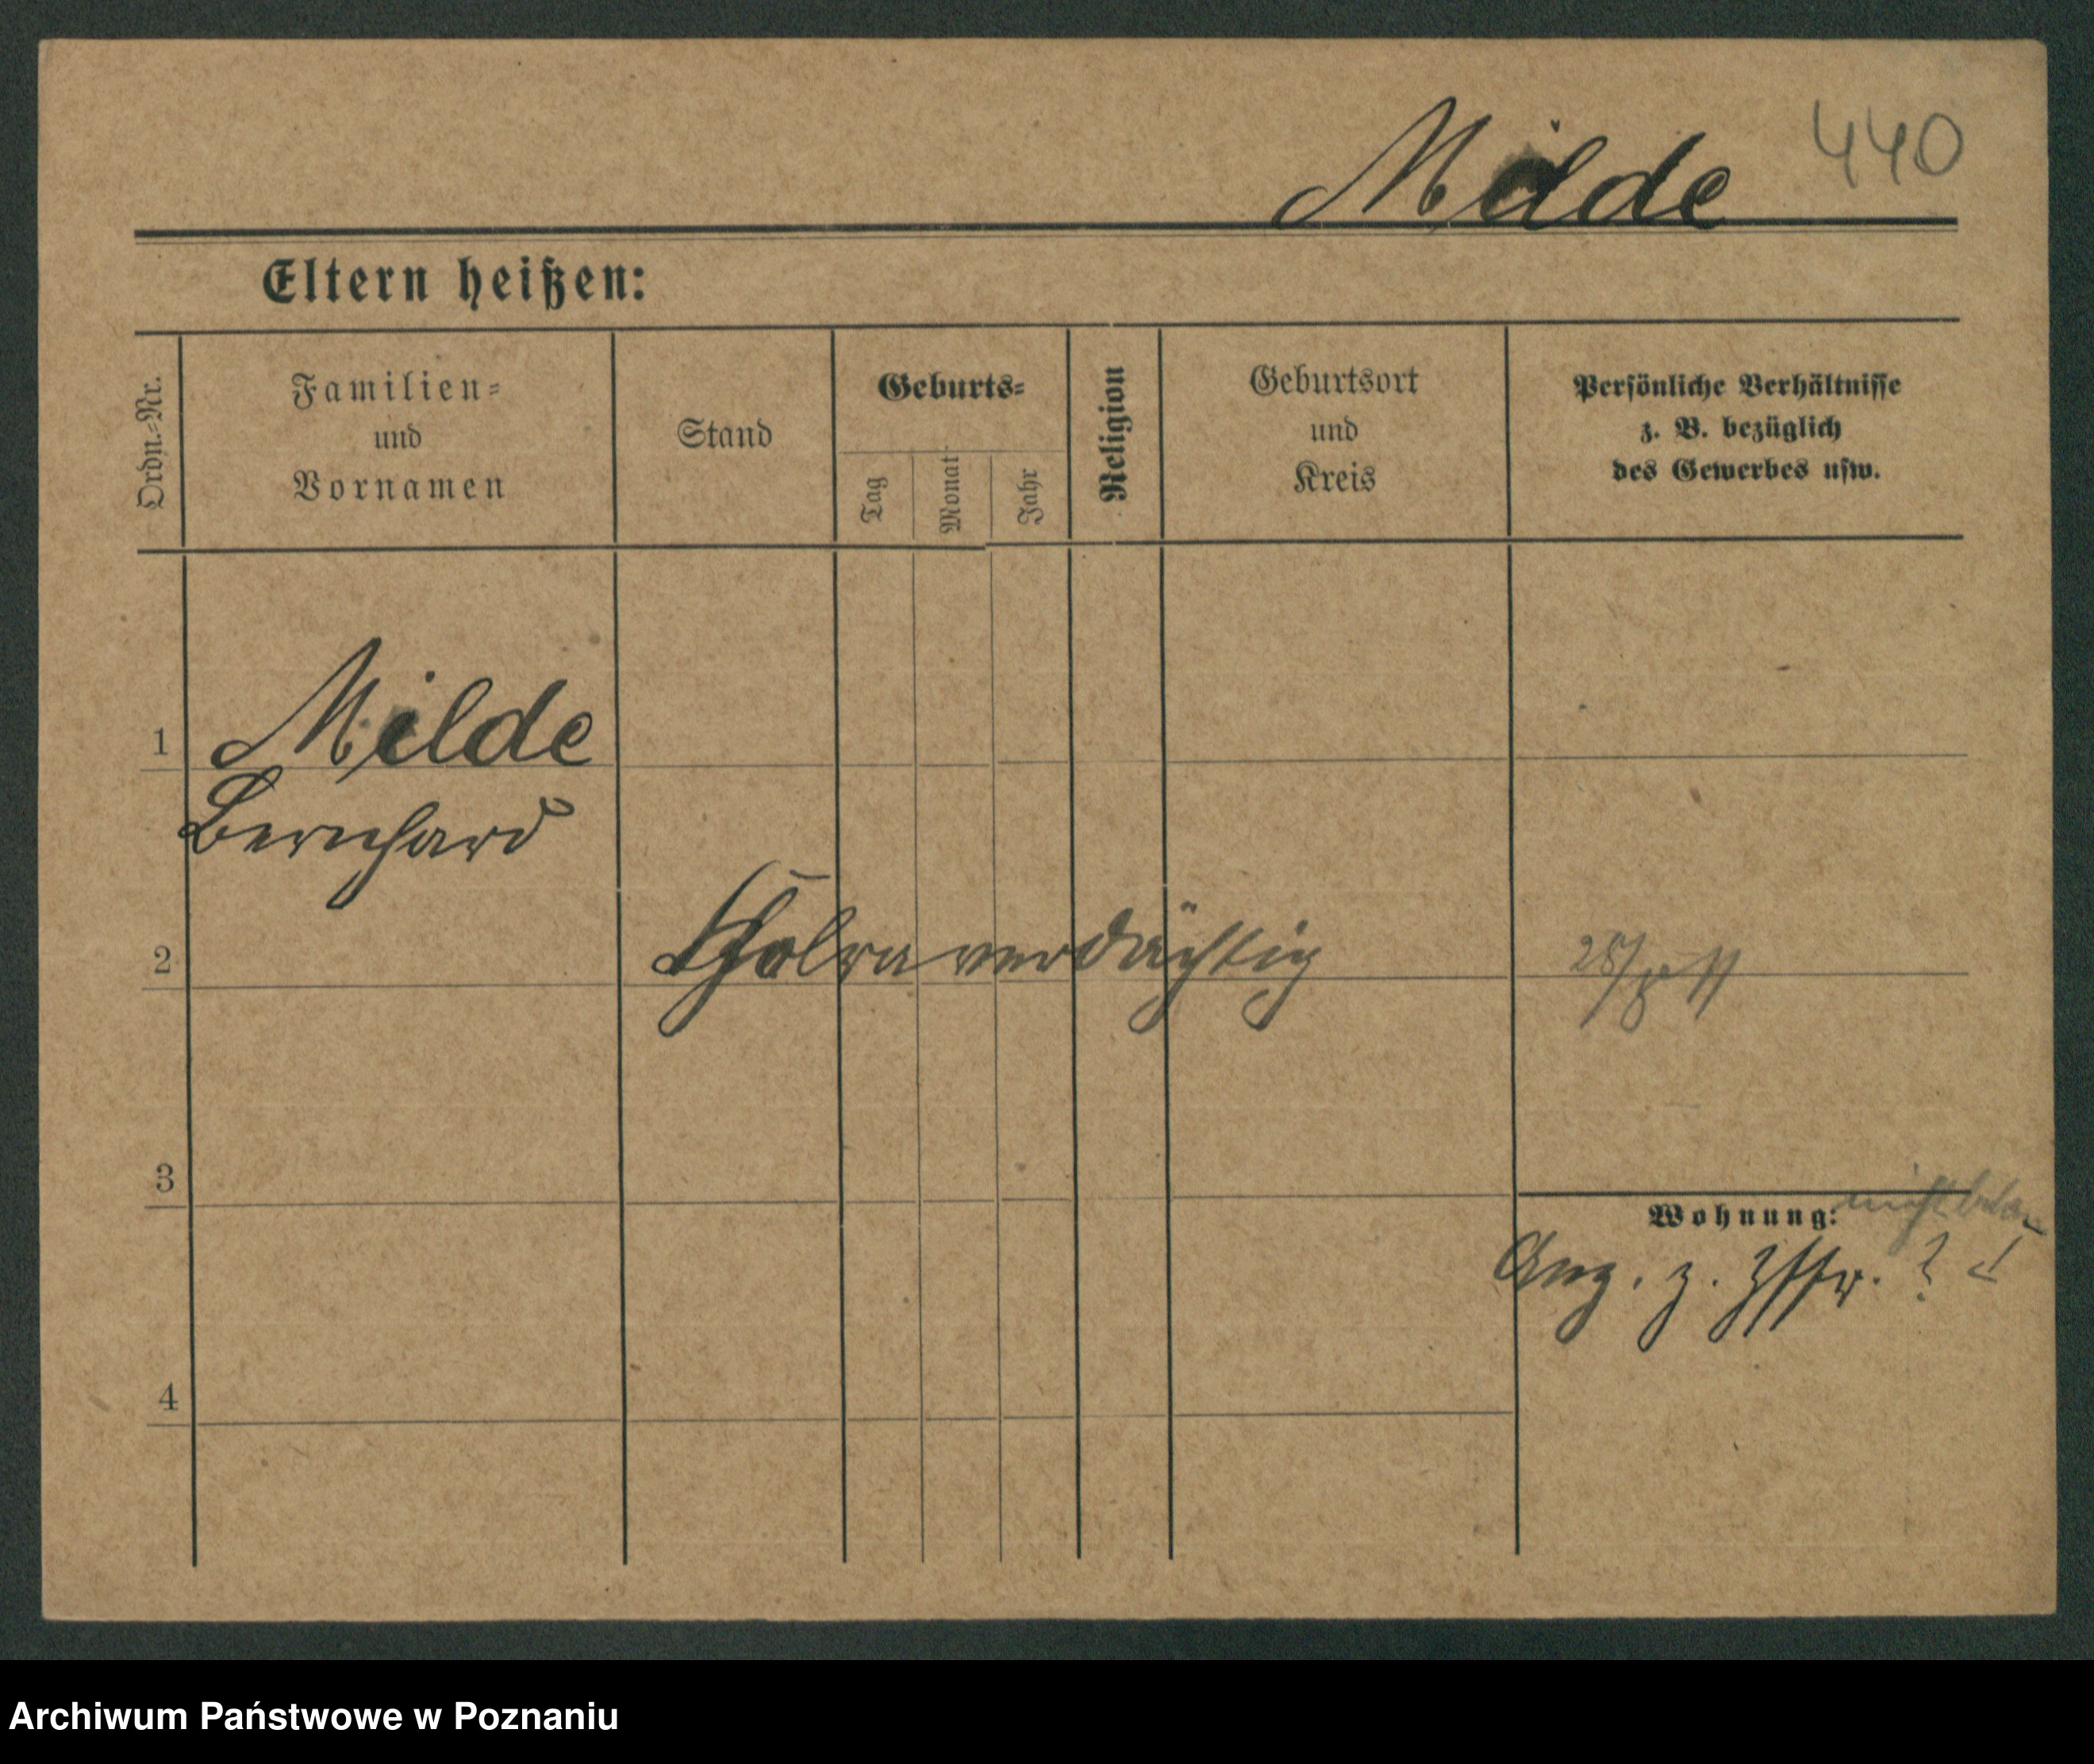 Milde 440
Eltern heißen:
Ordn.-Nr.
Familien-
und
Vornamen
Stand
Geburts-
Tag
Monat
Jahr
Religion
Geburtsort
und
Kreis
Persönliche Verhältnisse
z. B. bezüglich
des Gewerbes usw.
1 Milde
Bernhard
2 verdächtig
3
Wohnung: nicht
z.
4
Archiwum Państwowe w Poznaniu